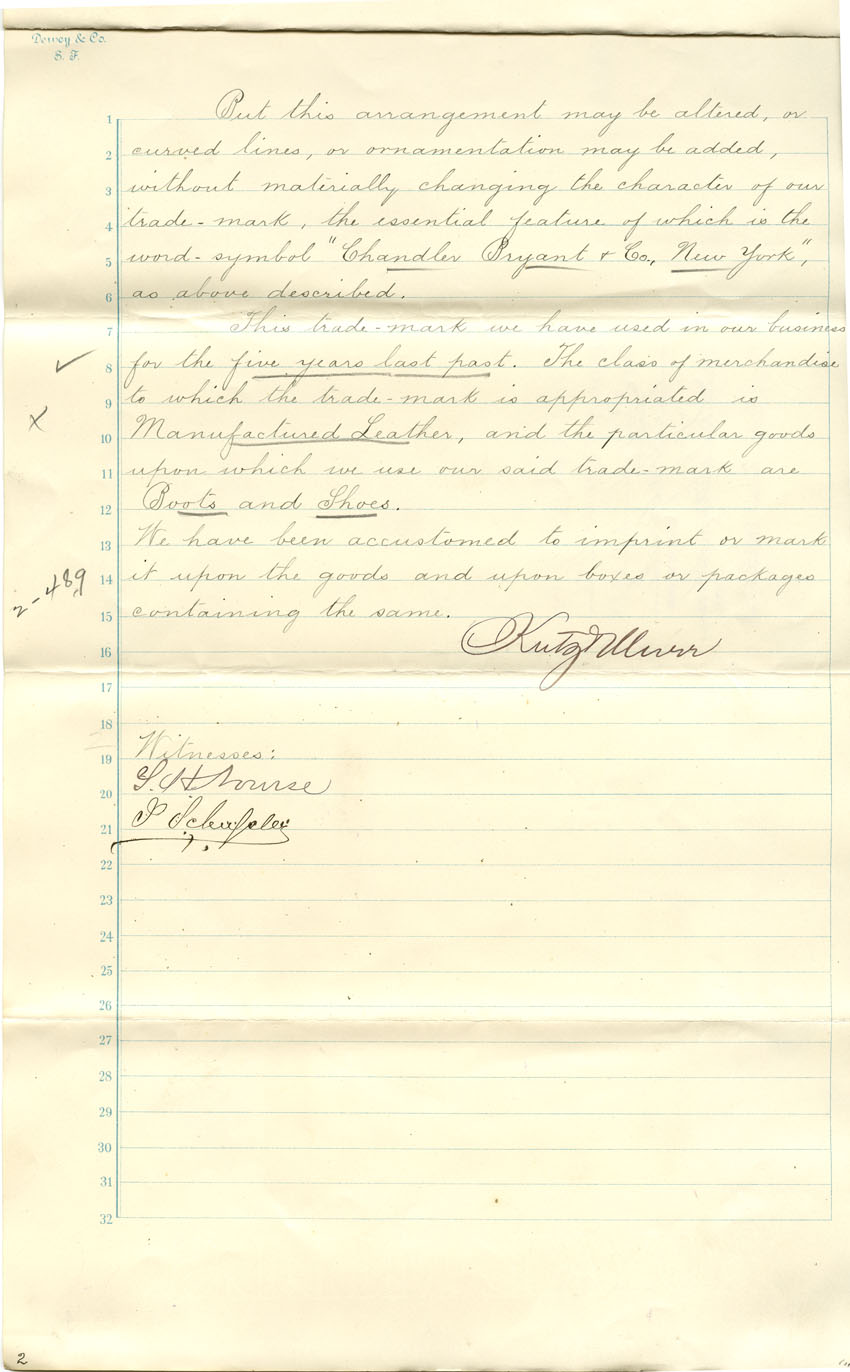 Dewey & Co.
S. F.
1 But this arrangement may be altered, or
2 curved lines, or ornamentation may be added,
3 without materially changing the character of our
4 trade-mark, the essential feature of which is the
5 word-symbol "Chandler Bryant & Co., New York",
6 as above described.
7 This trade-mark we have used in our business
8 for the five years last past. The class of merchandise
9 to which the trade-mark is appropriated is
10 Manufactured Leather, and the particular goods
11 upon which we use our said trade-mark are
12 Boots and Shoes.
13 We have been accustomed to imprint or mark
2-489
14 it upon the goods and upon boxes or packages
15 containing the same.
16 Kutz
17
18
19 Witnesses:
20 Nourse
21
22
23
24
25
26
27
28
29
30
31
32
2